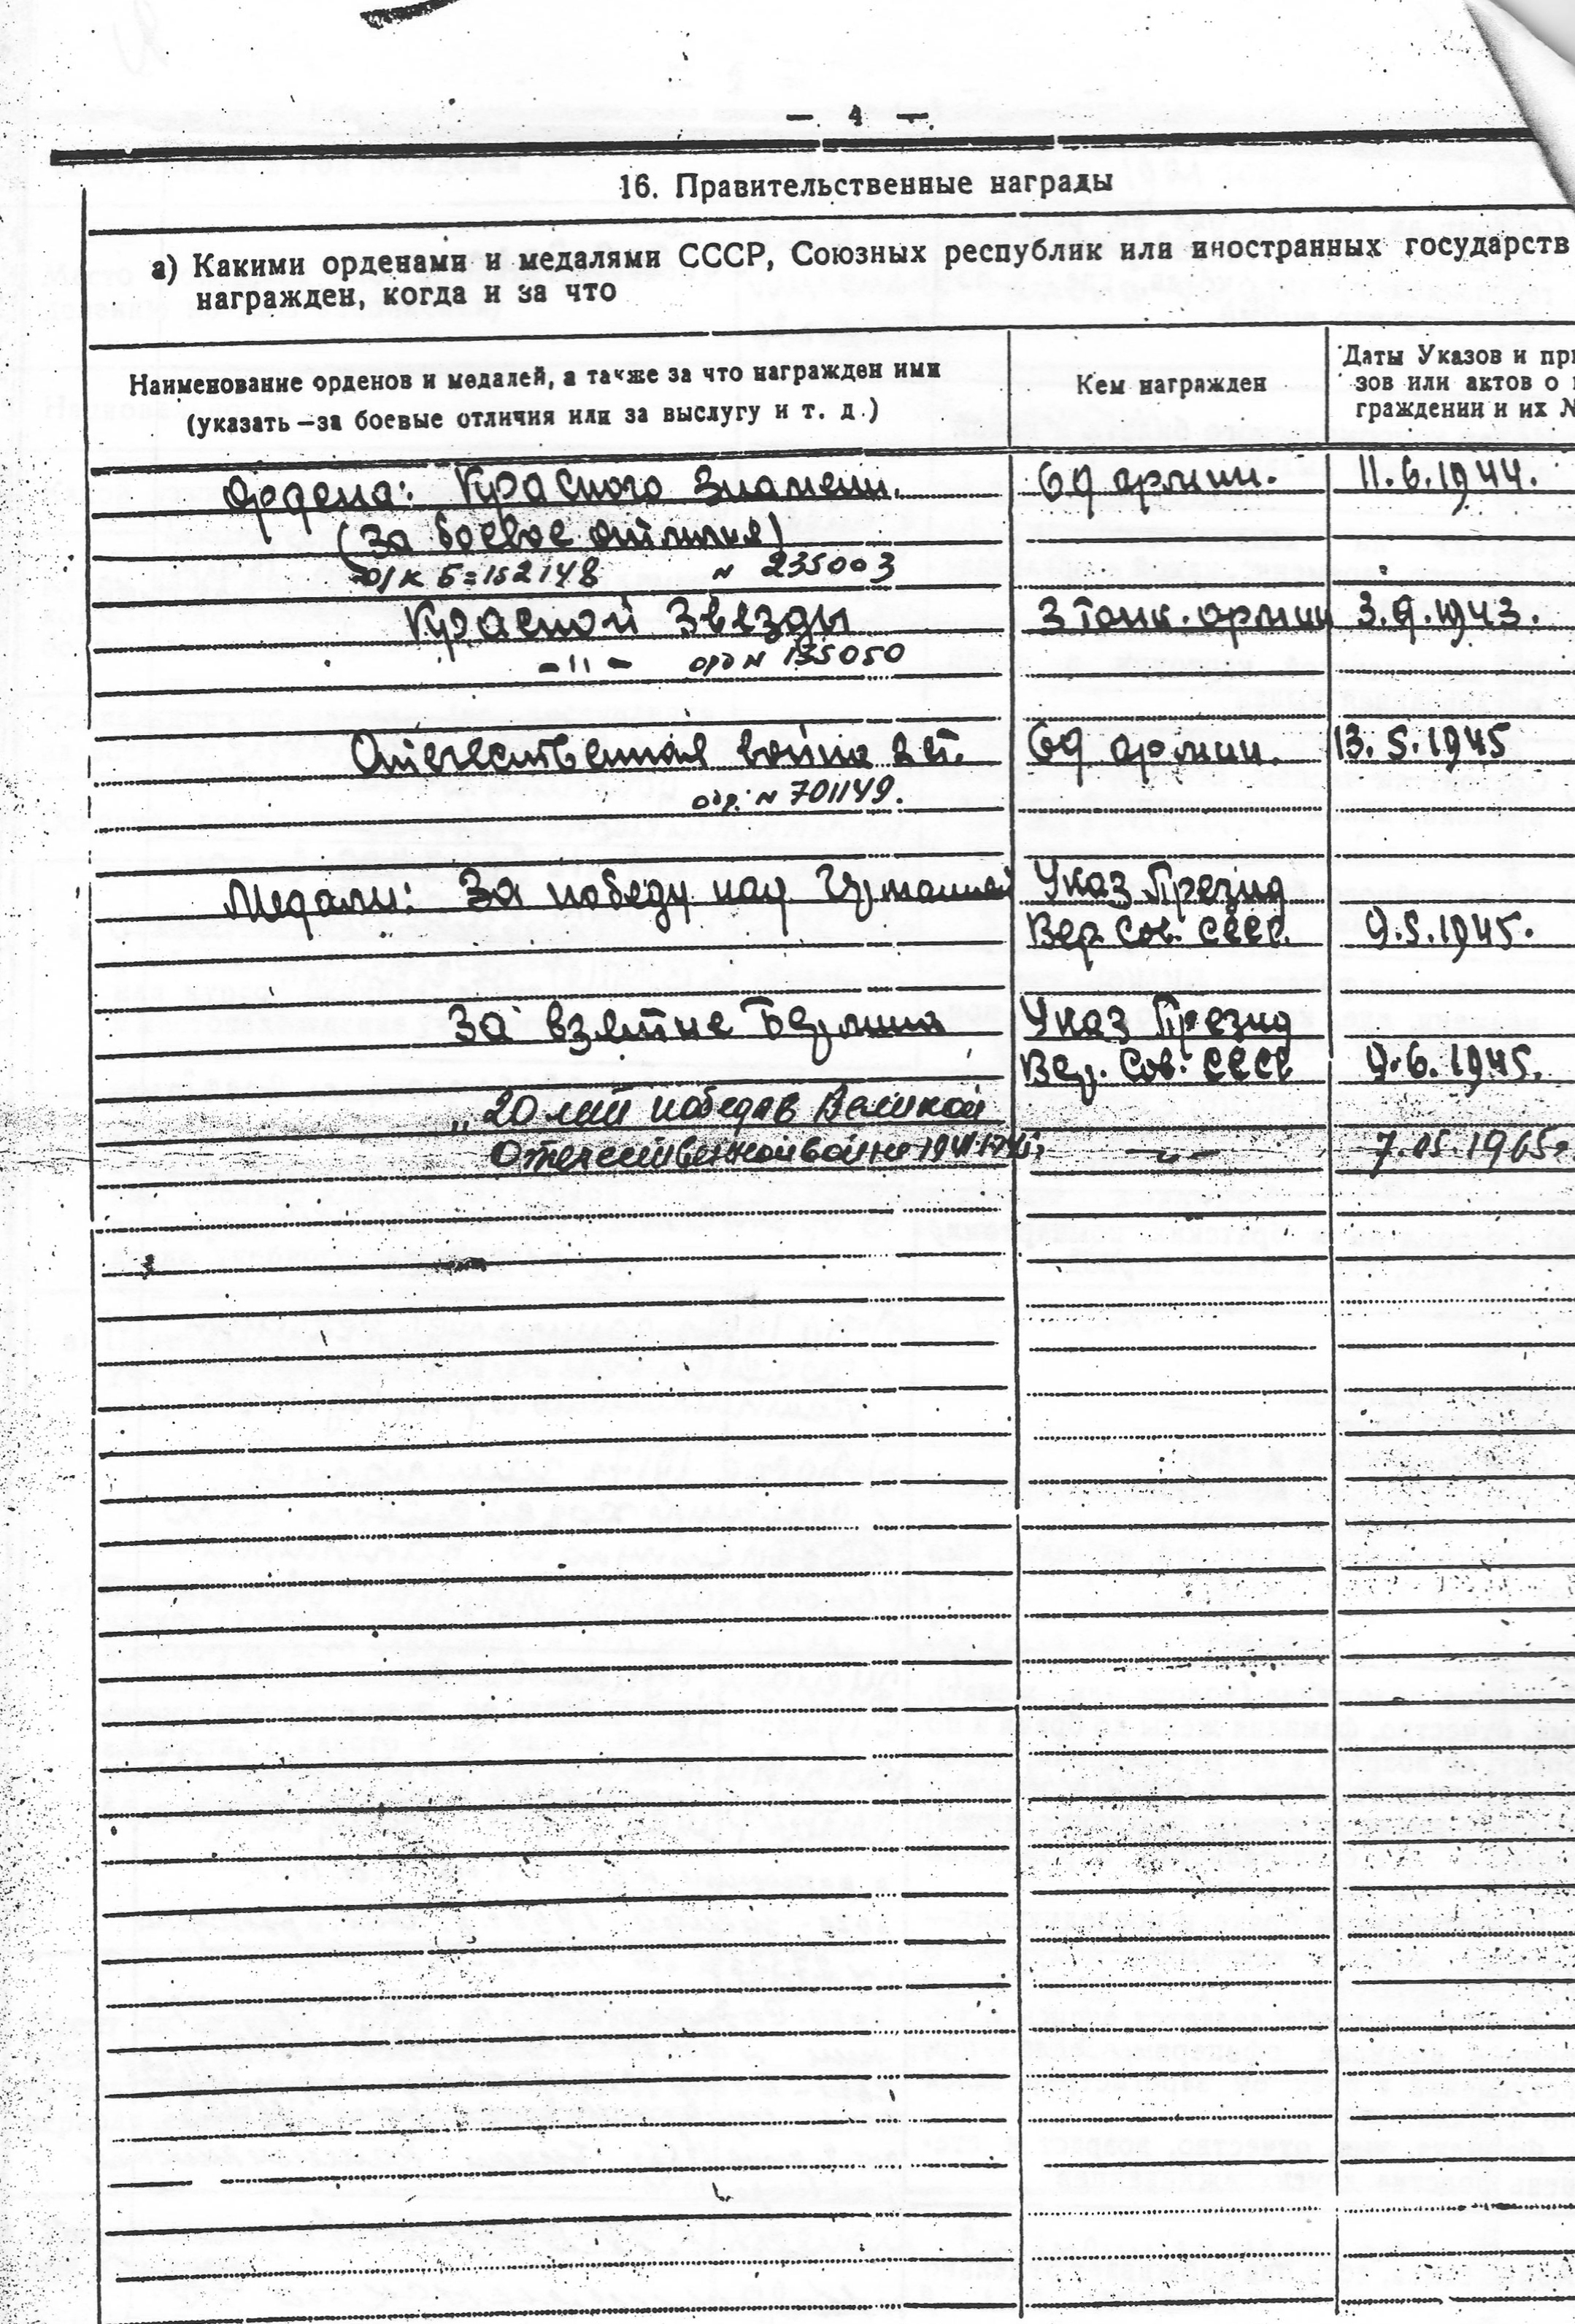 — 4 —
16. Правительственные награды
а) Какими орденами и медалями СССР, Союзных республик или иностранных государств
награжден, когда и за что
Наименование орденов и медалей, а также за что награжден ими
(указать — за боевые отличия или за выслугу и т. д.)
Кем награжден
Даты Указов и при
зов или актов о н
граждении и их №
Ордена: Красного Знамени. 69 армии. 11.6.1944.
(За боевое отличия)
о/к Б=152148 № 235003
Красной Звезды 3 танк. армии 3.9.1943.
-"- орд № 135050
Отечественная война 2 ст. 69 армии. 13.5.1945
орд. № 701149.
Медали: За победу над Германией Указ Презид
Вер. Сов. СССР. 9.5.1945.
За взятие Берлина Указ Презид
Вер. Сов. СССР 9.6.1945.
„20 лет победы в Великой
Отечественной войне 1941-1945г. -"- 7.05.1965г